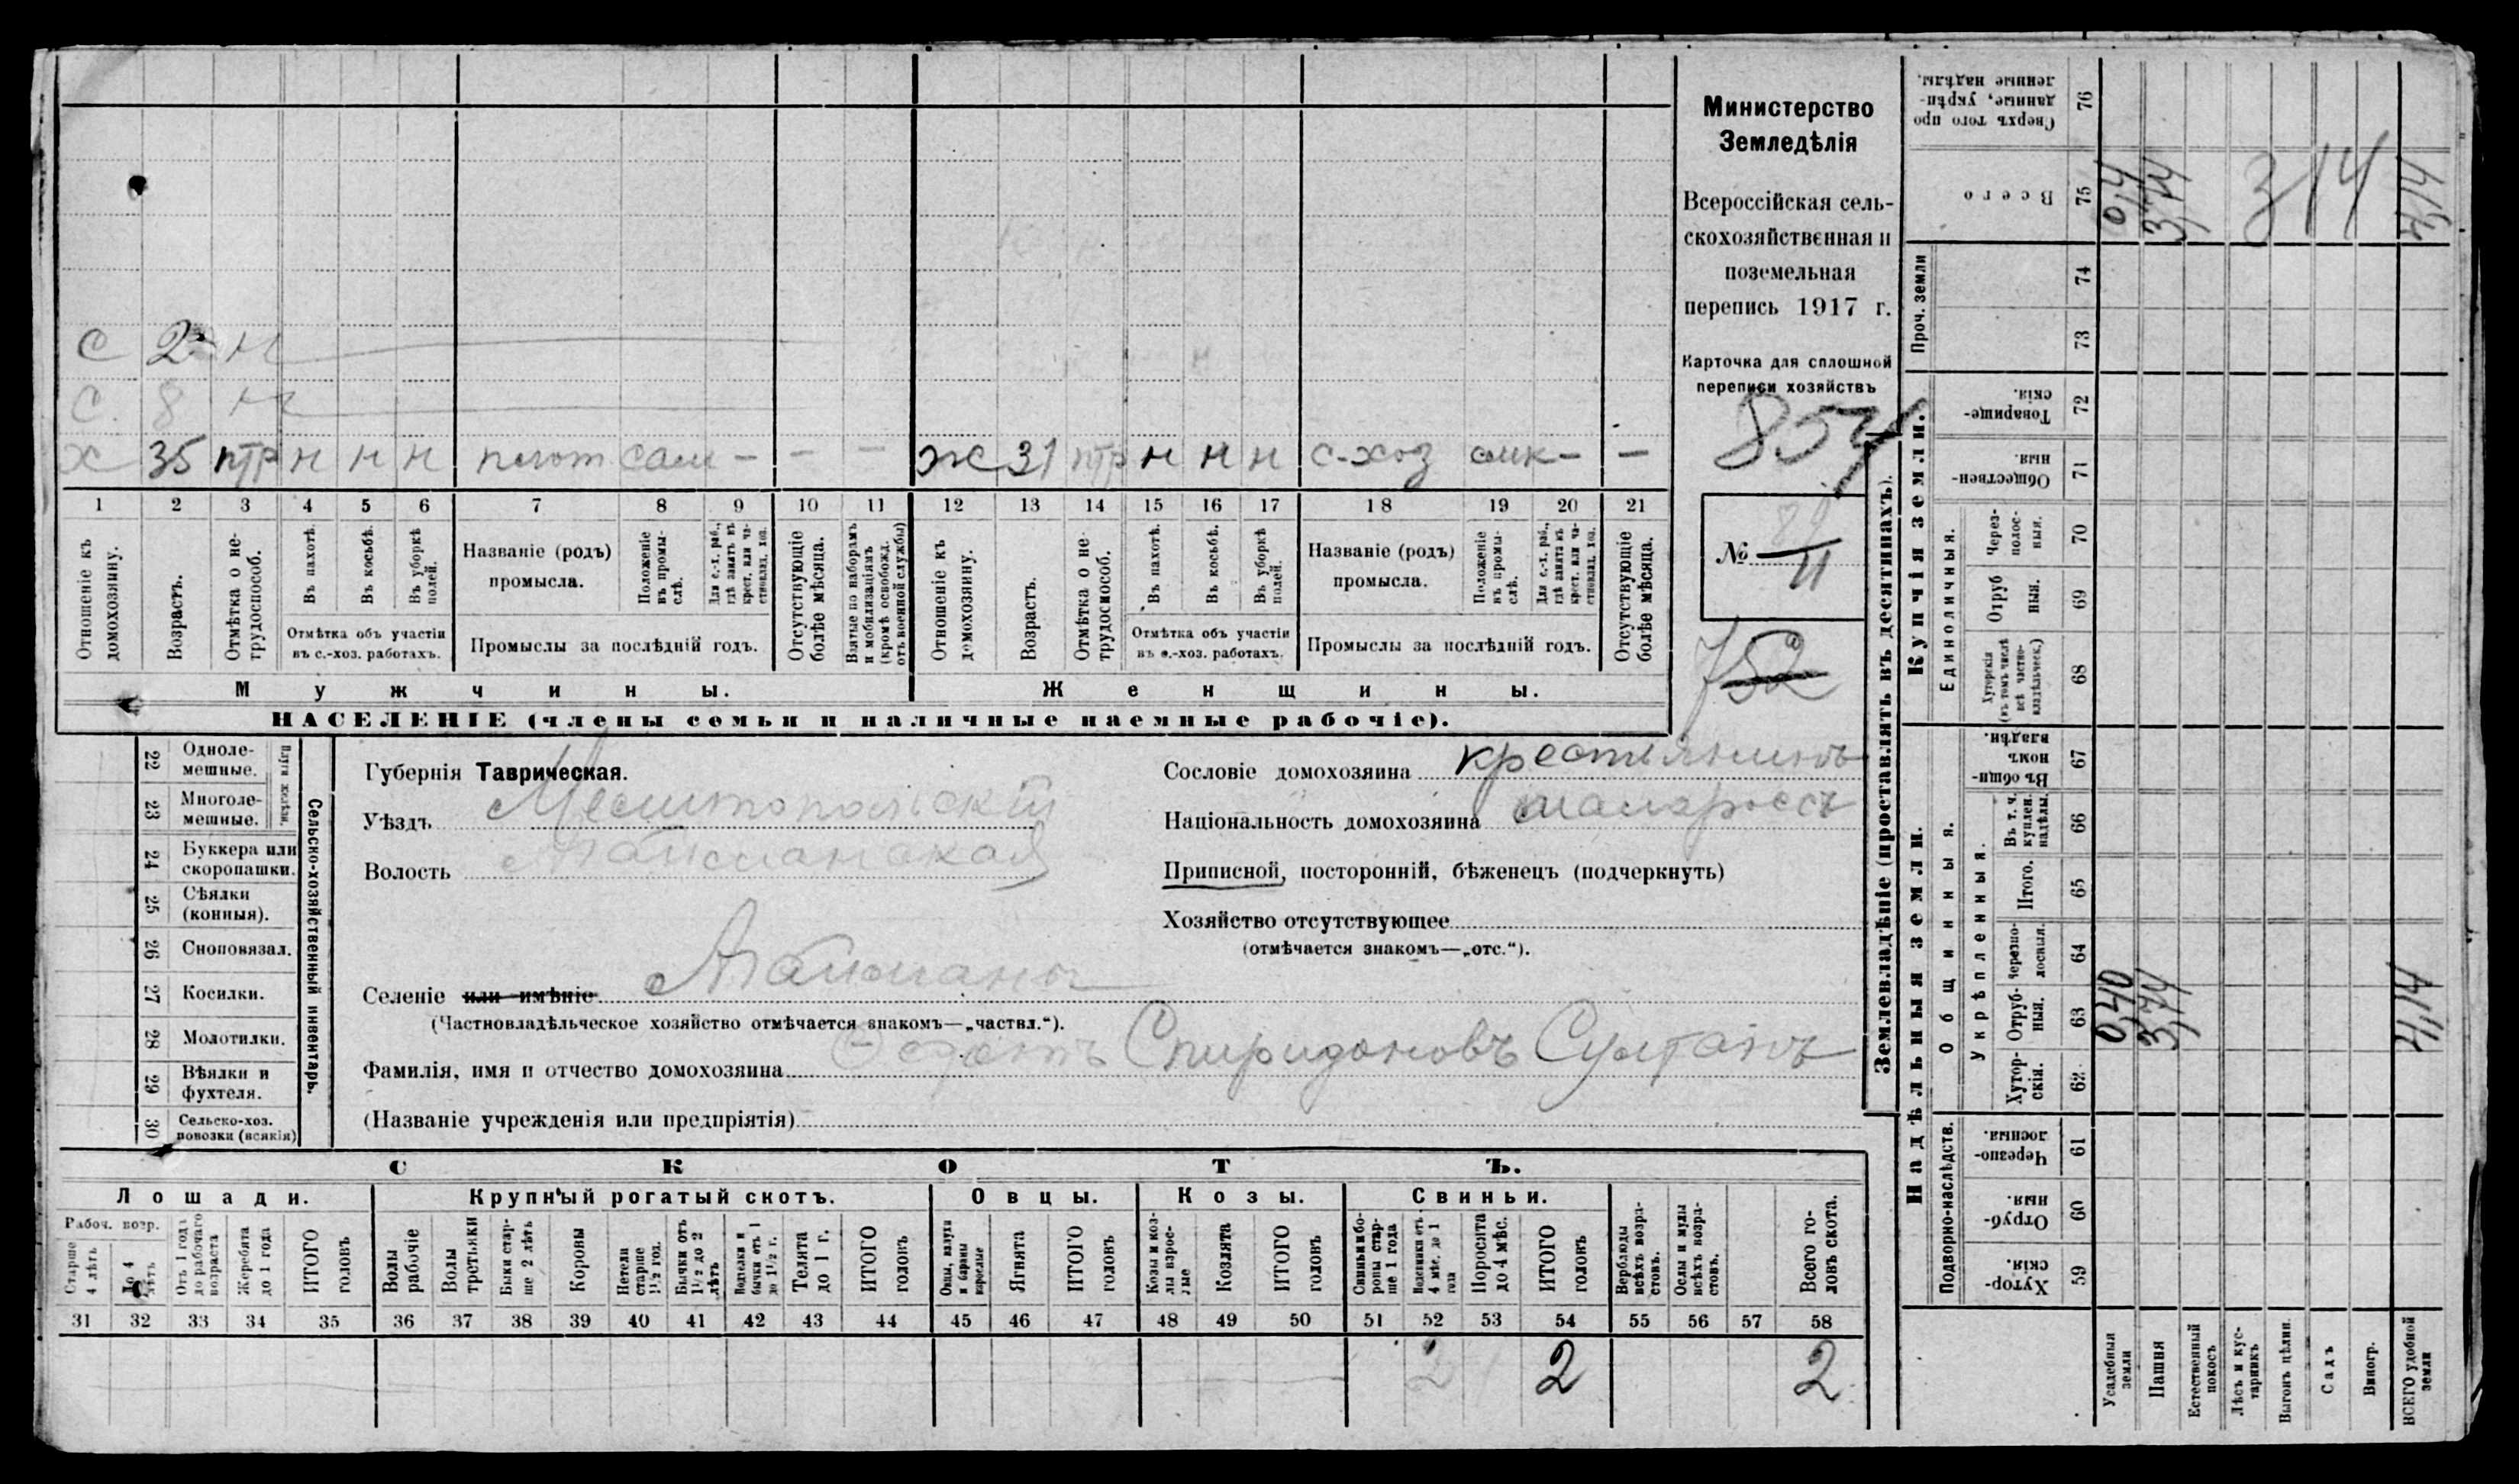 Министерство
Земледѣлія
Всероссійская сель-
скохозяйственная и
поземельная
перепись 1917 г.
Карточка для сплошной
переписи хозяйствъ
854
№ 11
752
с 2 н
с. 8 н
х 35 птр н н н плот сам - - - ж 31 птр н н н с-хоз - -
1 2 3 4 5 6 7 8 9 10 11 12 13 14 15 16 17 18 19 20 21
Отношеніе къ домохозяину.
Возрастъ.
Отмѣтка о не-трудоспособ.
Въ пахотѣ.
Въ косьбѣ.
Въ уборкѣ полей.
Отмѣтка объ участіи
въ с.-хоз. работахъ.
Названіе (родъ)
промысла.
Положеніе въ промы-слѣ.
Для с.-х. раб., гдѣ занятъ въ крест. или ча-стновлад. хоз.
Промыслы за послѣдній годъ.
Отсутствующіе болѣе мѣсяца.
Взятые по наборамъ и мобилизаціямъ (кромѣ освобожд. отъ военной службы)
Отношеніе къ домохозяину.
Возрастъ.
Отмѣтка о не-трудоспособ.
Въ пахотѣ.
Въ косьбѣ.
Въ уборкѣ полей.
Отмѣтка объ участіи
въ с.-хоз. работахъ.
Названіе (родъ)
промысла.
Положеніе въ промы-слѣ.
Для с.-х. раб., гдѣ занята въ крест. или ча-стновлад. хоз.
Промыслы за послѣдній годъ.
Отсутствующіе болѣе мѣсяца.
Мужчины. Женщины.
НАСЕЛЕНІЕ (члены семьи и наличные наемные рабочіе).
Сельско-хозяйственный инвентарь.
Плуги желѣзн.
22 Одноле-мешные.
23 Многоле-мешные.
24 Буккера или скоропашки.
25 Сѣялки (конныя).
26 Сноповязал.
27 Косилки.
28 Молотилки.
29 Вѣялки и фухтеля.
30 Сельско-хоз. повозки (всякія)
Губернія Таврическая.
Уѣздъ Мелитопольскій
Волость
Селеніе или имѣніе
(Частновладѣльческое хозяйство отмѣчается знакомъ—„частвл.“).
Фамилія, имя и отчество домохозяина Ѳедотъ Спиридоновъ Султанъ
(Названіе учрежденія или предпріятія)
Сословіе домохозяина крестьянинъ
Національность домохозяина малороссъ
Приписной, посторонній, бѣженецъ (подчеркнуть)
Хозяйство отсутствующее
(отмѣчается знакомъ—„отс.“).
СКОТЪ.
Лошади. Крупный рогатый скотъ. Овцы. Козы. Свиньи.
Рабоч. возр.
Старше 4 лѣтъ
До 4 лѣтъ
Отъ 1 года до рабочаго возраста
Жеребята до 1 года
ИТОГО головъ
Волы рабочіе
Волы третьяки
Быки стар-ше 2 лѣтъ
Коровы
Нетели старше 1½ год.
Бычки отъ 1½ до 2 лѣтъ
Телята до 1 г.
ИТОГО головъ
Ягнята
ИТОГО головъ
Козы и коз-лы взрос-лые
Козлята
ИТОГО головъ
Поросята до 4 мѣс.
ИТОГО головъ
Верблюды всѣхъ возра-стовъ.
Ослы и мулы всѣхъ возра-стовъ.
Всего го-ловъ скота.
31 32 33 34 35 36 37 38 39 40 41 42 43 44 45 46 47 48 49 50 51 52 53 54 55 56 57 58
2 2 2
Землевладѣніе (проставлять въ десятинахъ).
Надѣльныя земли. Купчія земли.
Подворно-наслѣдств.
Общинныя.
Укрѣпленныя.
Единоличныя.
Проч. земли
59 Хутор-скія.
60 Отруб-ныя.
61 Черезпо-лосныя.
62 Хутор-скія.
63 Отруб-ныя. 0,40 3,74 4,14
64 Черезпо-лосныя.
65 Итого.
66 Въ т. ч. куплен. надѣлы.
67 Въ общи-номъ владѣн.
68 Хуторскія (въ томъ числѣ всѣ частно-владѣльческ.)
69 Отрубныя.
70 Через-полос-ныя.
71 Обществен-ныя.
72 Товарище-скія.
73
74
75 Всего 3,74 314 4,14
76 Сверхъ того про-данные, укрѣп-ленные надѣлы.
Усадебныя земли
Пашня
Естественный покосъ
Лѣсъ и кус-тарникъ
Выгонъ цѣлин.
Садъ
Виногр.
ВСЕГО удобной земли